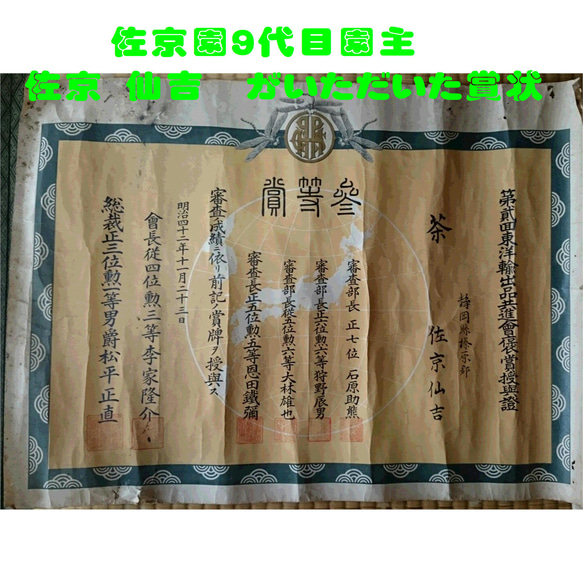 佐京園9代目園主
佐京 仙吉 がいただいた賞状
參等賞
第貳回東洋輸出品共進會褒賞授與證
茶
静岡縣榛原郡
佐京仙吉
審査部長 正七位 石原助熊
審査部長正六位勲六等狩野辰男
審査部長従五位勲六等大林雄也
審査長正五位勲五等恩田鐵彌
審査成績ニ依リ前記ノ賞牌ヲ授與ス
明治四十二年十一月二十三日
會長従四位勲三等李家隆介
総裁正三位勲一等男爵松平正直